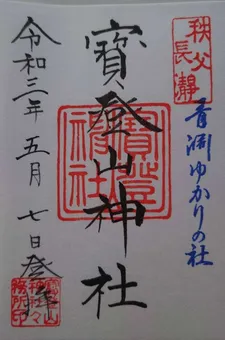 秩父
長瀞
青淵ゆかりの社
寳登山神社
寳登山神社
令和三年五月七日登拝
寳登山
神社々
務所印